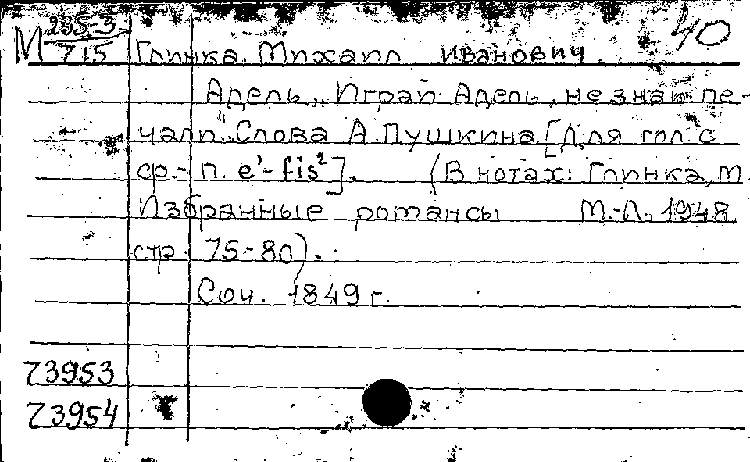 40
М 235-3/715 Глинка, Михаил Иванович.
Адель „Играй Адель, не знай пе-
чали". Слова А. Пушкина. [Для гол. с
ф.-п. e¹-fis²]. (В нотах: Глинка, М.
Избранные романсы М.-Л., 1948
стр. 75-80).
Соч. 1849 г.
73953
73954